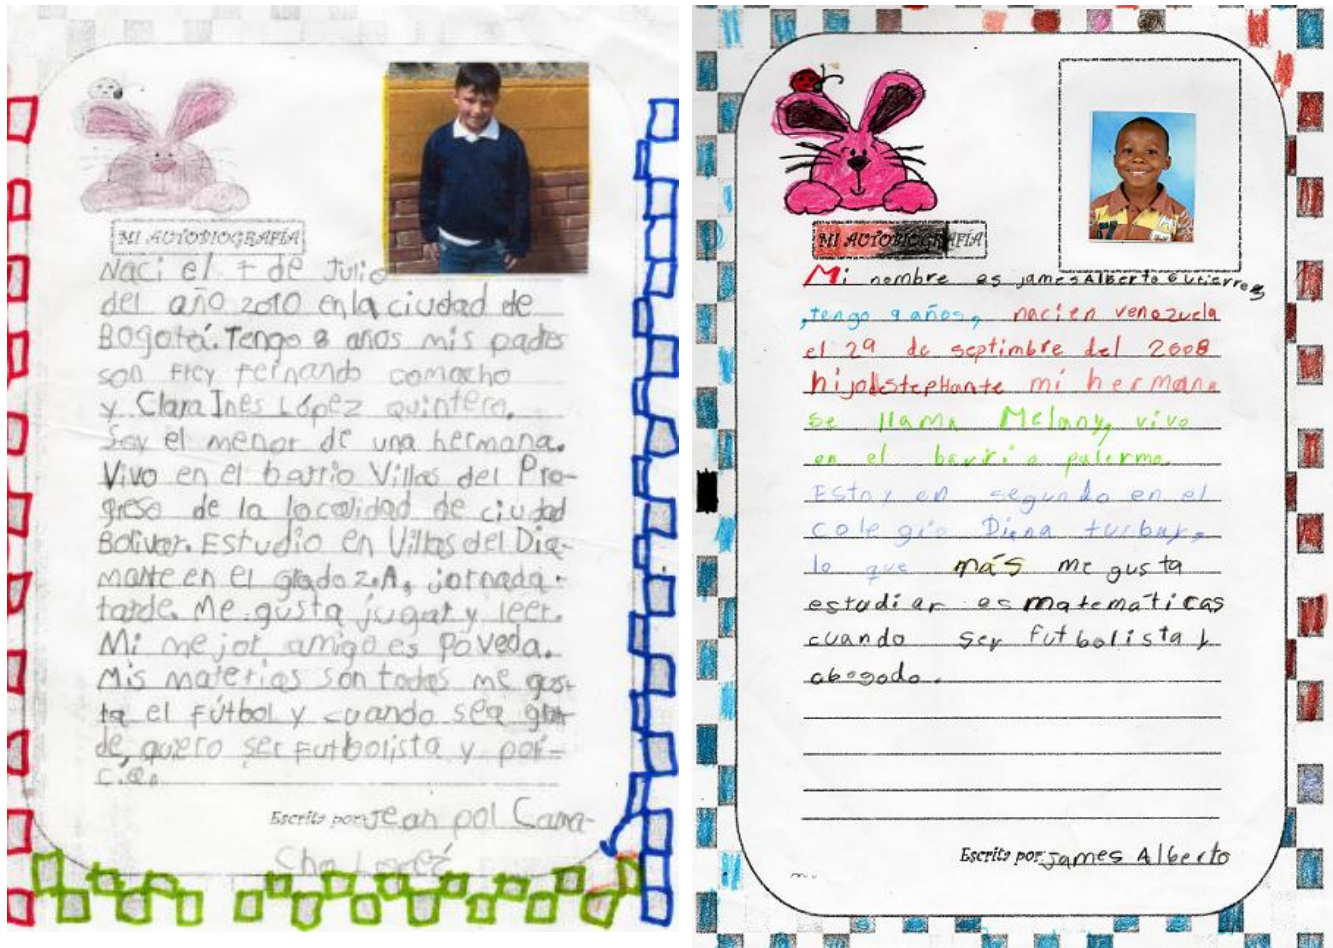 MI AUTOBIOGRAFÍA
Naci el 7 de Julio
del año 2010 en la ciudad de
Bogotá. Tengo 8 años mis padres
son Frey Fernando comacho
y Clara Ines López quintero.
Soy el menor de una hermana.
Vivo en el barrio Villas del Pro-
greso de la localidad de ciudad
Bolivar. Estudio en Villas del Dia-
mante en el grado 2.A, jornada
tarde. Me gusta jugar y leer.
Mi mejor amigo es Poveda.
Mis materias son todas me gus-
ta el fútbol y cuando sea gran
de, quiero ser futbolista y poli-
c.a.
Escrito por: Jean pol Cama-
cho Lopez
MI AUTOBIOGRAFÍA
Mi nombre es james Alberto Gutierrez
, tengo 9 años, naci en venezuela
el 29 de septimbre del 2008
hijo de stephante mi hermana
se llama Melany, vivo
en el barrio palermo.
Estoy en segundo en el
colegio Diana turbay,
lo que más me gusta
estudiar es matemáticas
cuando ser futbolista y
abogado.
Escrito por: james Alberto